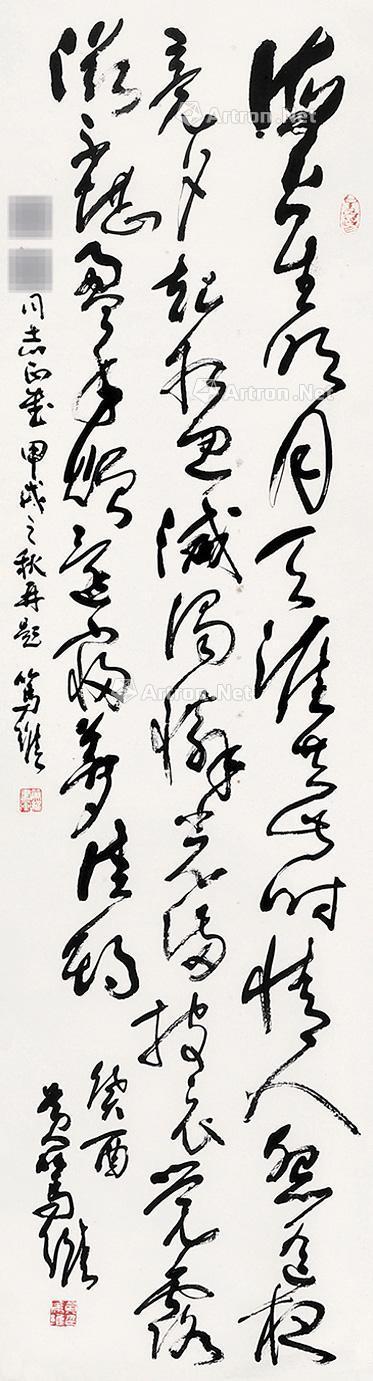 海上生明月天涯共此时情人怨遥夜
竟夕起相思灭烛怜光满披衣觉露
滋不堪盈手赠还寝梦佳期
癸酉
黄笃维
同志正书甲戌之秋再题笃维
Artron.Net
Artron.Net
Artron.Net
Artron.Net